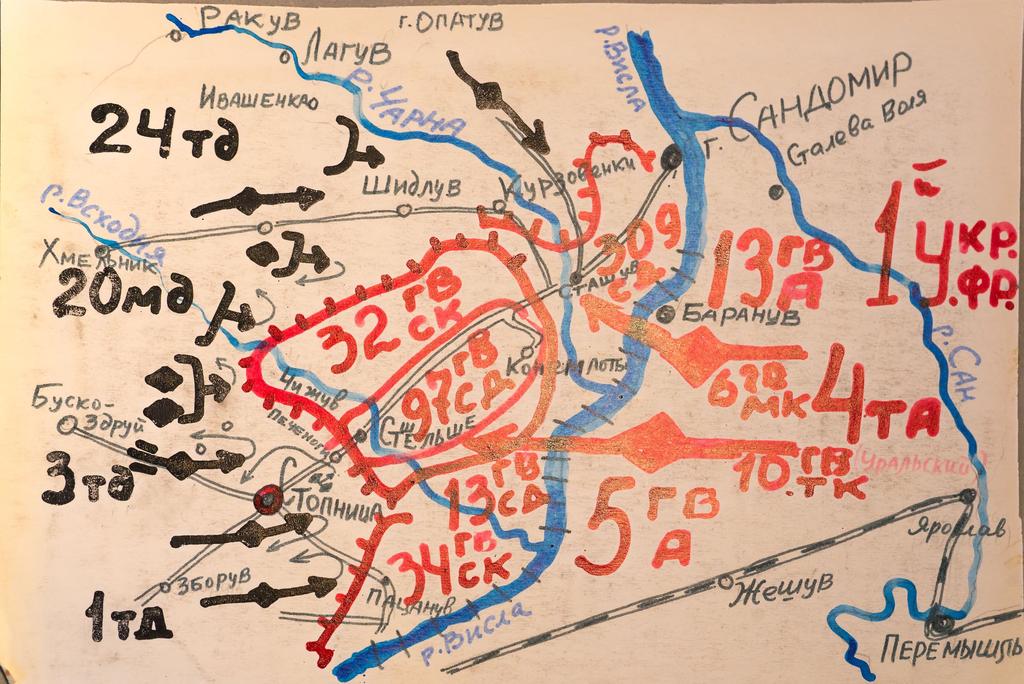 Ракув
г. Опатув
Лагув
р. Висла
Ивашенкао
р. Чарна
г. Сандомир
24тд
Сталева Воля
Шидлув
Курзовенки
р. Всходня
Хмельник
309
сд
13 гв
А
1й Укр.
фр.
20мд
32 гв
ск
Сташув
Баранув
97 гв
сд
6 гв
мк
4та
Чижув
Стельце
Буско-
Здруй
3тд
10 гв
.тк
(Уральский)
13 гв
сд
5 гв
А
Топница
34 гв
ск
р. Сан
Ярослав
Зборув
Пацанув
Жешув
1тд
р. Висла
Перемышль